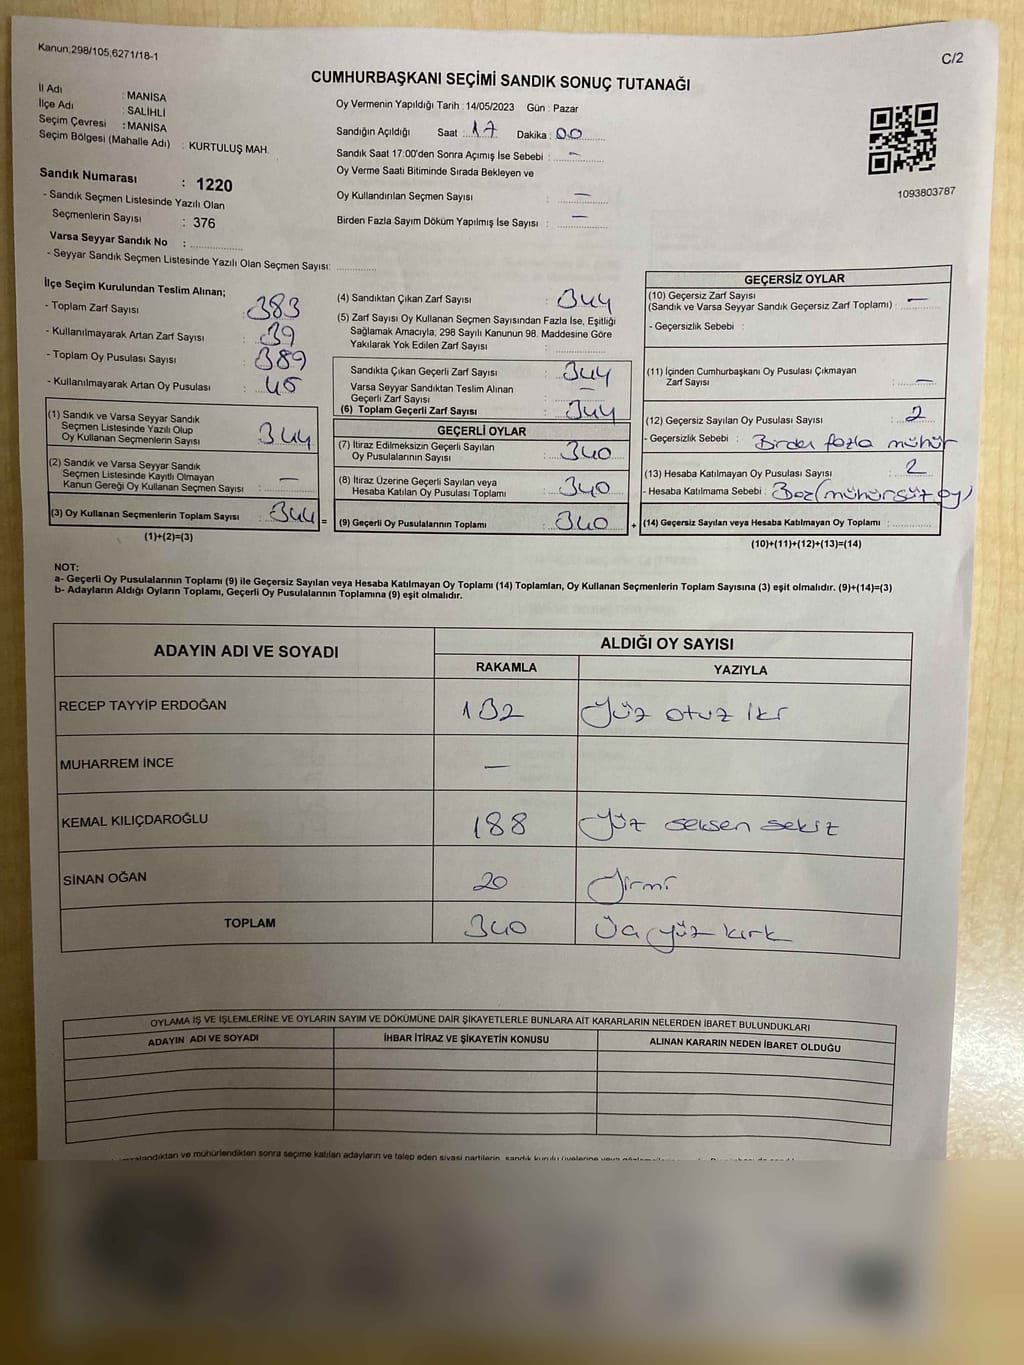 Kanun,298/105,6271/18-1
C/2
CUMHURBAŞKANI SEÇİMİ SANDIK SONUÇ TUTANAĞI
İl Adı : MANİSA
İlçe Adı : SALİHLİ
Seçim Çevresi : MANİSA
Seçim Bölgesi (Mahalle Adı) : KURTULUŞ MAH.
Sandık Numarası : 1220
- Sandık Seçmen Listesinde Yazılı Olan
Seçmenlerin Sayısı : 376
Varsa Seyyar Sandık No :
- Seyyar Sandık Seçmen Listesinde Yazılı Olan Seçmen Sayısı:
Oy Vermenin Yapıldığı Tarih : 14/05/2023 Gün : Pazar
Sandığın Açıldığı Saat : 17 Dakika : 00
Sandık Saat 17:00'den Sonra Açımış İse Sebebi : —
Oy Verme Saati Bitiminde Sırada Bekleyen ve
Oy Kullandırılan Seçmen Sayısı : —
Birden Fazla Sayım Döküm Yapılmış İse Sayısı : —
1093803787
İlçe Seçim Kurulundan Teslim Alınan;
- Toplam Zarf Sayısı : 383
- Kullanılmayarak Artan Zarf Sayısı : 39
- Toplam Oy Pusulası Sayısı : 389
- Kullanılmayarak Artan Oy Pusulası : 45
(1) Sandık ve Varsa Seyyar Sandık
Seçmen Listesinde Yazılı Olup
Oy Kullanan Seçmenlerin Sayısı 344
(2) Sandık ve Varsa Seyyar Sandık
Seçmen Listesinde Kayıtlı Olmayan
Kanun Gereği Oy Kullanan Seçmen Sayısı : —
(3) Oy Kullanan Seçmenlerin Toplam Sayısı : 344 =
(1)+(2)=(3)
(4) Sandıktan Çıkan Zarf Sayısı : 344
(5) Zarf Sayısı Oy Kullanan Seçmen Sayısından Fazla İse, Eşitliği
Sağlamak Amacıyla, 298 Sayılı Kanunun 98. Maddesine Göre
Yakılarak Yok Edilen Zarf Sayısı :
Sandıkta Çıkan Geçerli Zarf Sayısı : 344
Varsa Seyyar Sandıktan Teslim Alınan
Geçerli Zarf Sayısı : —
(6) Toplam Geçerli Zarf Sayısı : 344
GEÇERLİ OYLAR
(7) İtiraz Edilmeksizin Geçerli Sayılan
Oy Pusulalarının Sayısı : 340
(8) İtiraz Üzerine Geçerli Sayılan veya
Hesaba Katılan Oy Pusulası Toplamı : 340
(9) Geçerli Oy Pusulalarının Toplamı : 340 +
GEÇERSİZ OYLAR
(10) Geçersiz Zarf Sayısı
(Sandık ve Varsa Seyyar Sandık Geçersiz Zarf Toplamı) : —
- Geçersizlik Sebebi :
(11) İçinden Cumhurbaşkanı Oy Pusulası Çıkmayan
Zarf Sayısı : —
(12) Geçersiz Sayılan Oy Pusulası Sayısı : 2
- Geçersizlik Sebebi : Birden fazla mühür
(13) Hesaba Katılmayan Oy Pusulası Sayısı : 2
- Hesaba Katılmama Sebebi : Boz(mühürsüz oy)
(14) Geçersiz Sayılan veya Hesaba Katılmayan Oy Toplamı :
(10)+(11)+(12)+(13)=(14)
NOT:
a- Geçerli Oy Pusulalarının Toplamı (9) ile Geçersiz Sayılan veya Hesaba Katılmayan Oy Toplamı (14) Toplamları, Oy Kullanan Seçmenlerin Toplam Sayısına (3) eşit olmalıdır. (9)+(14)=(3)
b- Adayların Aldığı Oyların Toplamı, Geçerli Oy Pusulalarının Toplamına (9) eşit olmalıdır.
ADAYIN ADI VE SOYADI
ALDIĞI OY SAYISI
RAKAMLA YAZIYLA
RECEP TAYYİP ERDOĞAN 132 Yüz otuz iki
MUHARREM İNCE —
KEMAL KILIÇDAROĞLU 188 Yüz seksen sekiz
SİNAN OĞAN 20 Yirmi
TOPLAM 340 Üç yüz kırk
OYLAMA İŞ VE İŞLEMLERİNE VE OYLARIN SAYIM VE DÖKÜMÜNE DAİR ŞİKAYETLERLE BUNLARA AİT KARARLARIN NELERDEN İBARET BULUNDUKLARI
ADAYIN ADI VE SOYADI İHBAR İTİRAZ VE ŞİKAYETİN KONUSU ALINAN KARARIN NEDEN İBARET OLDUĞU
ve mühürlendikten sonra seçime katılan adayların ve talep eden siyasi partilerin, sandık kurulu üyelerine veya